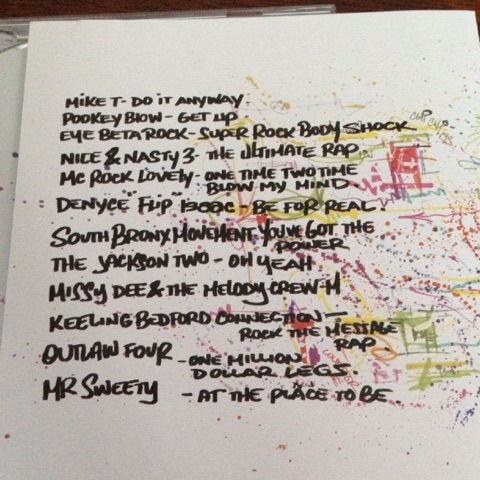 MIKE T - DO IT ANYWAY.
POOKEY BLOW - GET UP
EYE BETA ROCK - SUPER ROCK BODY SHOCK
NICE & NASTY 3 - THE ULTIMATE RAP
MC ROCK LOVELY - ONE TIME TWO TIME
BLOW MY MIND.
DENYCE FLIP ISAAC - BE FOR REAL.
SOUTH BRONX MOVEMENT, YOU'VE GOT THE
POWER
THE JACKSON TWO - OH YEAH
MISSY DEE & THE MELODY CREW - M
KEELING BEDFORD CONNECTION -
ROCK THE MESSAGE
RAP
OUTLAW FOUR - ONE MILLION
DOLLAR LEGS.
MR SWEETY - AT THE PLACE TO BE.